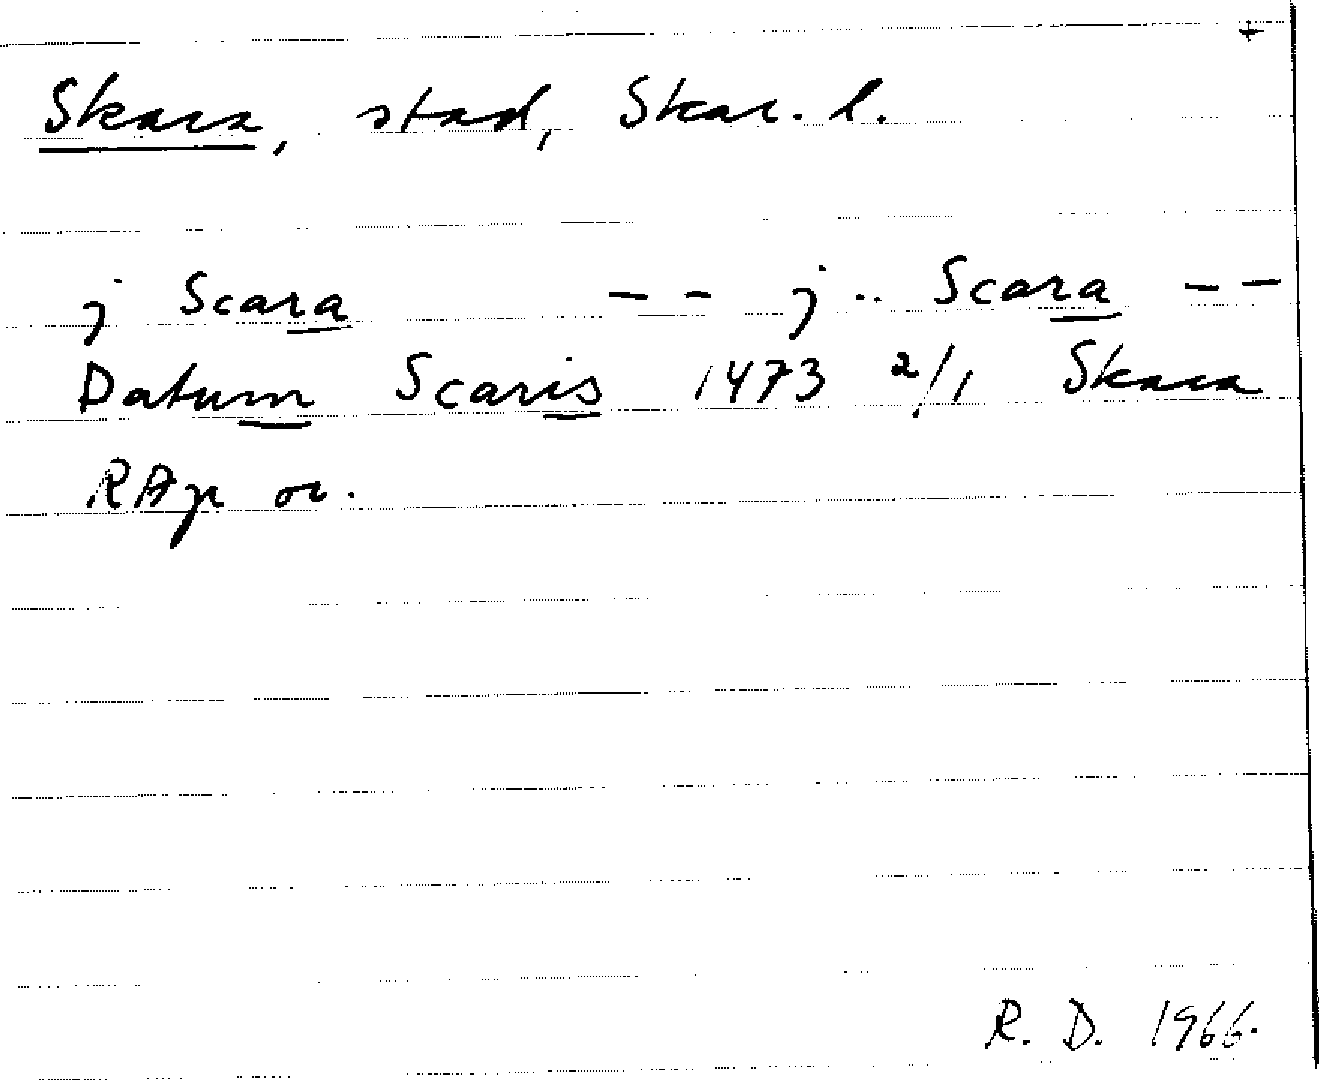 +
Skara, stad, Skar. l.
j Scara -- j .. Scara --
Datum Scaris 1473 2/1 Skara
RAp or.
R. D. 1966.